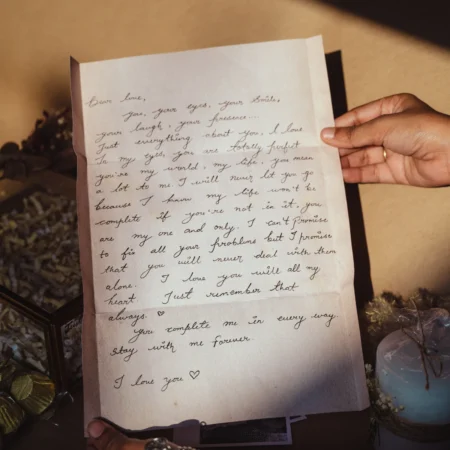 Dear love,
you, your eyes, your smile,
your laugh, your presence...
Just everything about you, I love
In my eyes, you are totally perfect
you're my world, my life, you mean
a lot to me I will never let you go
because I know my life won't be
complete if you're not in it, you
are my one and only, I can't promise
to fix all your problems but I promise
that you will never deal with them
alone. I love you will all my
heart. Just remember that
always. ♡
You complete me in every way
Stay with me forever
I love you ♡